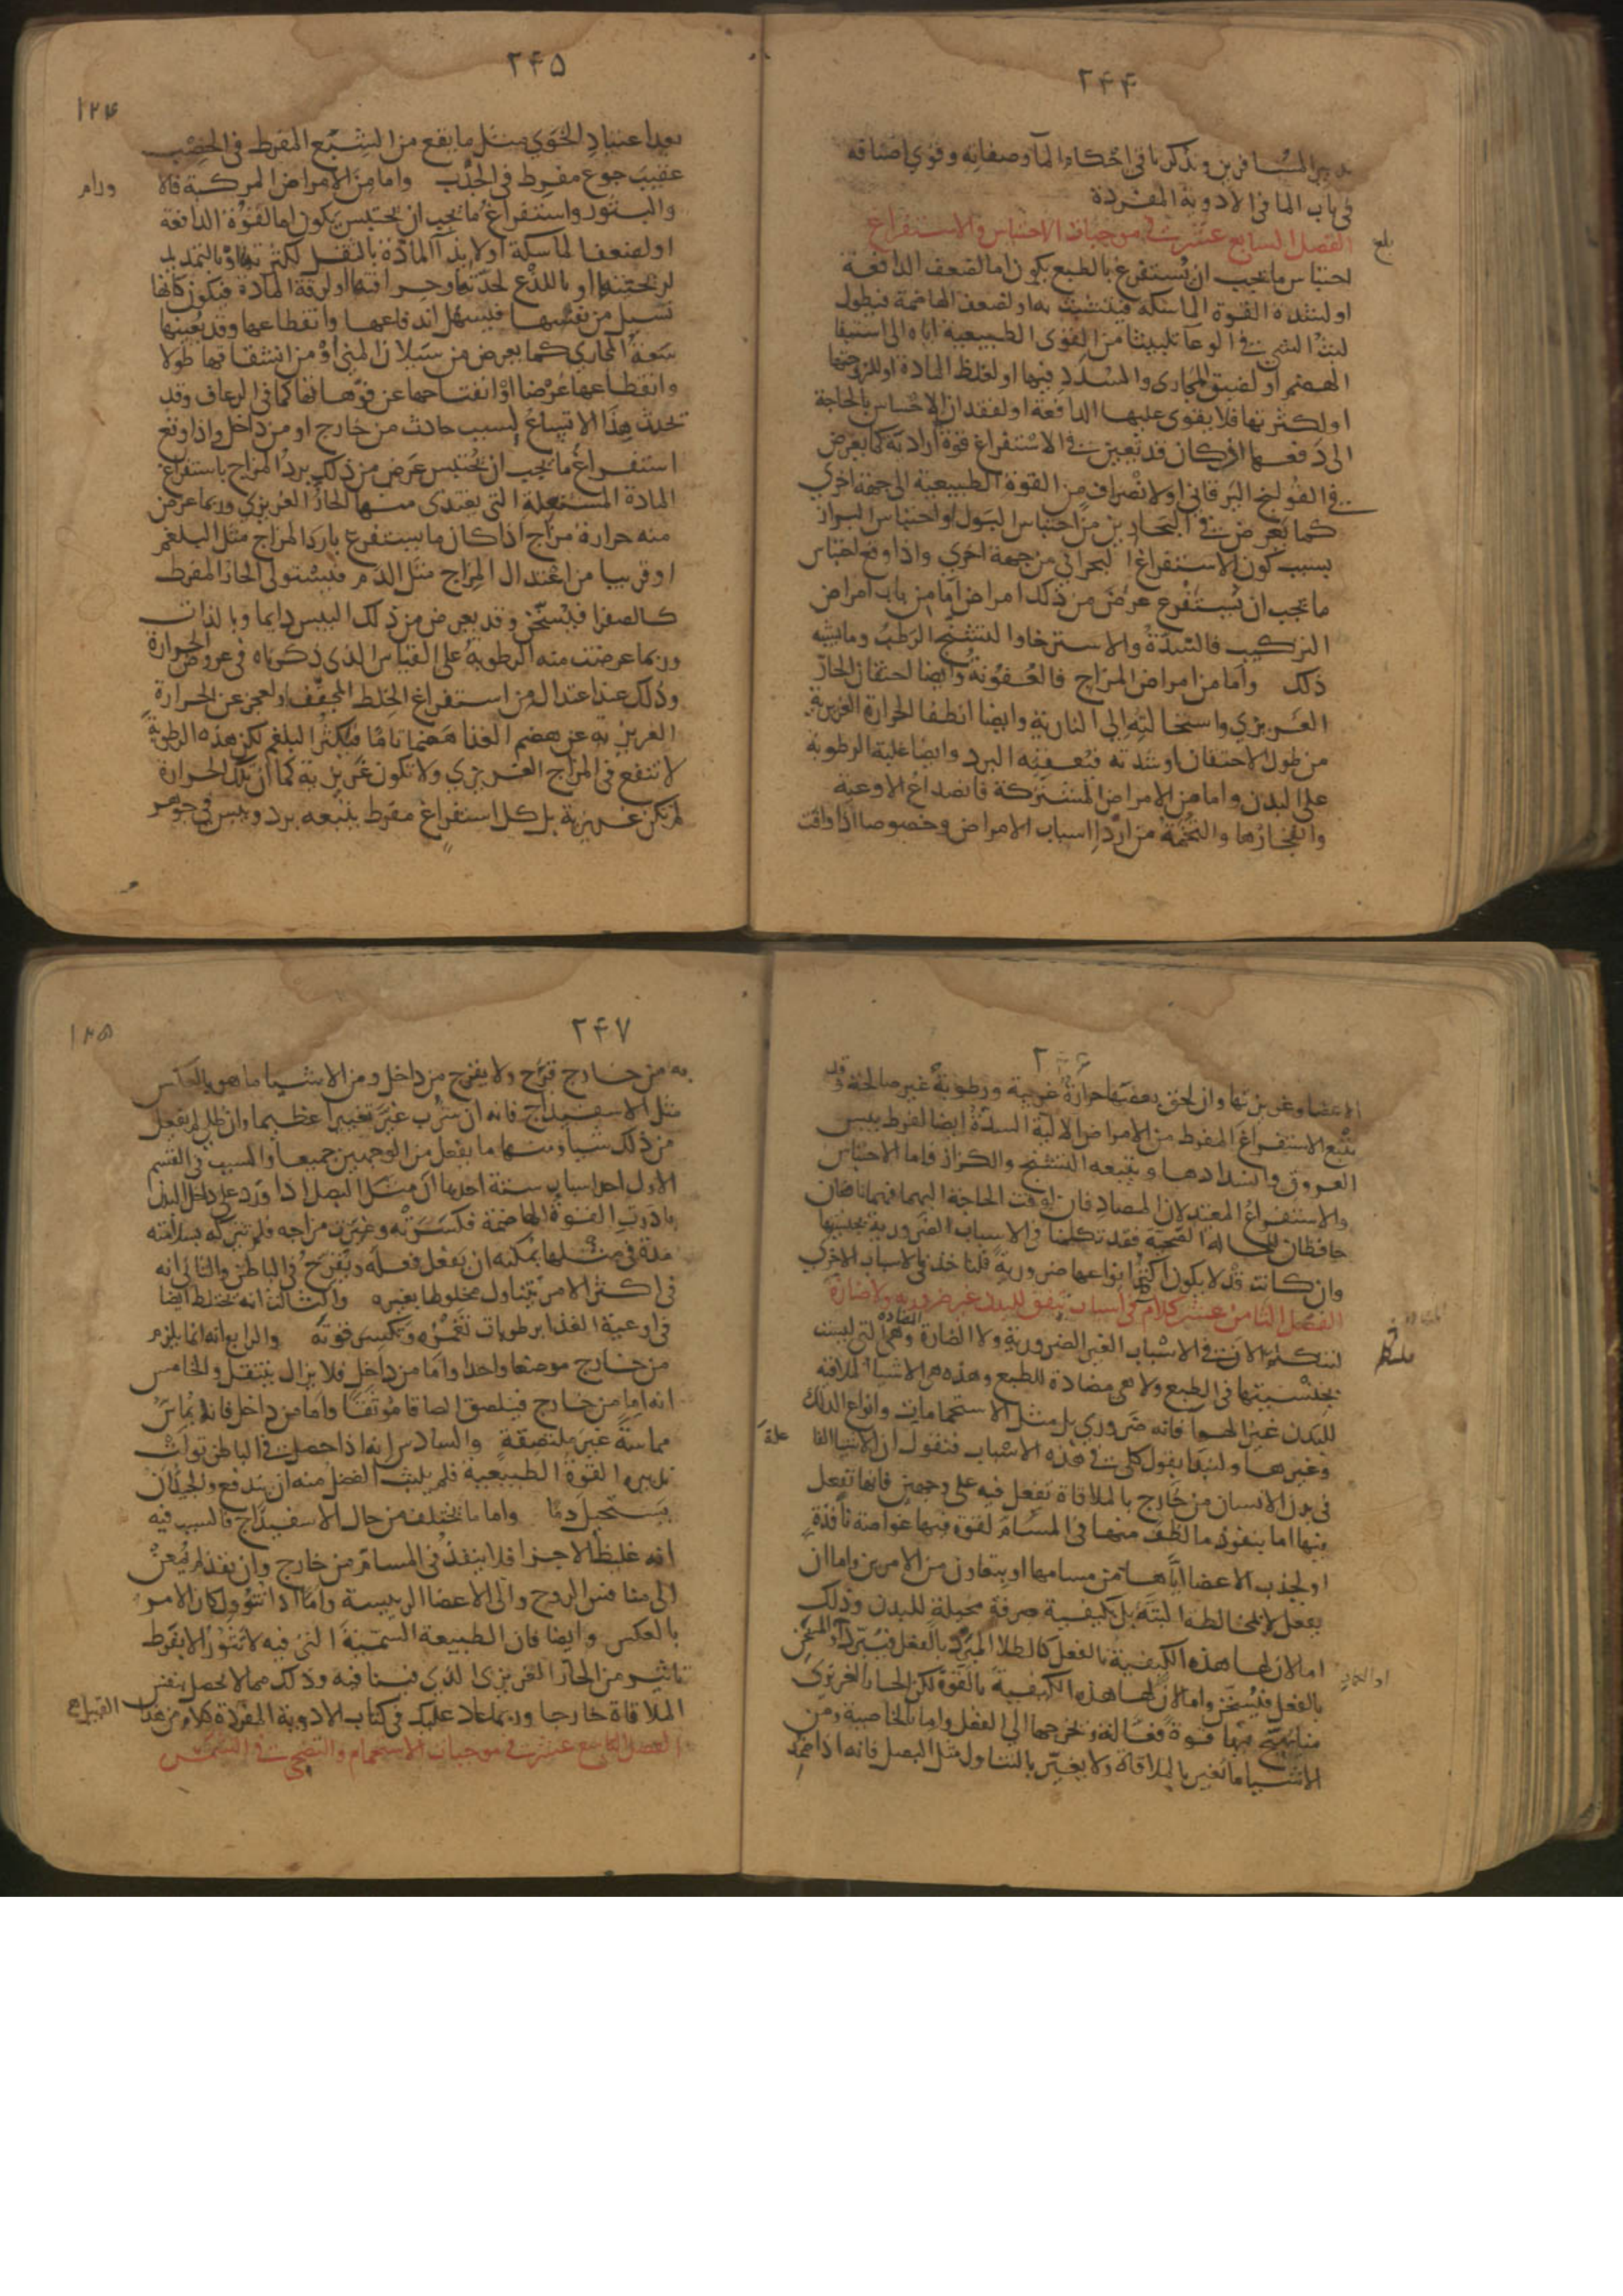 ٢۴۴
تدبير المسافرين ونذكر باقي احكام الما وصفاته وقوي اصنافه
في باب الما في الادوية المفردة
الفصل السابع عشر في موجبات الاحتباس والاستفراغ
بلغ
احتباس ما يجب ان يستفرغ بالطبع يكون اما لضعف الدافعة
او لشدة القوة الماسكة فتتشبث به او لضعف الهاضمة فيطول
لبث الشي في الوعا تلبيثا من القوى الطبيعية اياه الى استيفا
الهضم او لضيق المجاري والسدد فيها او لغلظ المادة او للزوجتها
او لكثرتها فلا يقوى عليها الدافعة او لفقدان الاحساس بالحاجة
الى دفعها اذ كان قد تعين في الاستفراغ قوة ارادية كما يعرض
في القولنج اليرقاني او لانصراف من القوة الطبيعية الى جهة اخرى
كما يعرض في البحارين من احتباس البول او احتباس البراز
بسبب كون الاستفراغ البحراني من جهة اخرى واذا وقع احتباس
ما يجب ان يستفرغ عرض من ذلك امراض اما من باب امراض
التركيب فالسدة والاسترخا والتشنج الرطب وما يشبه
ذلك واما من امراض المزاج فالعفونة وايضا احتقان الحار
الغريزي واستحالته الى النارية وايضا انطفا الحرارة الغريزية
من طول الاحتقان او شدته فتعقبه البرد وايضا غلبة الرطوبة
على البدن واما من الامراض المشتركة فانصداع الاوعية
وانفجارها والتخمة من اردا اسباب الامراض وخصوصا اذا وافت
٢۴۵
١٢۴
بعد اعتياد الخوي مثل ما يقع من الشبع المفرط في الخصب
عقيب جوع مفرط في الجدب واما من الامراض المركبة فالا
ورام
والبثور واستفراغ ما يجب ان يحتبس يكون اما لقوة الدافعة
او لضعف الماسكة او لايذا المادة بالثقل لكثرتها او بالتمديد
لريحتها او باللذع لحدتها وحرافتها او لرقة المادة فيكون كانها
تسيل من نفسها فيسهل اندفاعها وانقطاعها وقد يعينها
سعة المجاري كما يعرض من سيلان المني او من انشقاقها طولا
وانقطاعها عرضا او انفتاحها عن فوهاتها كما في الرعاف وقد
يحدث هذا الاتساع لسبب حادث من خارج او من داخل واذا وقع
استفراغ ما يجب ان يحتبس عرض من ذلك برد المزاج باستفراغ
المادة المشتعلة التي يغتذي منها الحار الغريزي وربما عرض
منه حرارة مزاج اذا كان ما يستفرغ بارد المزاج مثل البلغم
او قريبا من اعتدال المزاج مثل الدم فيستولي الحار المفرط
كالصفرا فيسخن وقد يعرض من ذلك اليبس دايما وبالذات
وربما عرضت منه الرطوبة على القياس الذي ذكرناه في عروض الحرارة
وذلك عند اعتدال من استفراغ الخلط المجفف او لعجز عن الحرارة
الغريزية عن هضم الغذا هضما تاما فيكثر البلغم لكن هذه الرطوبة
لا تنفع في المزاج الغريزي ولا تكون غريزية كما ان تلك الحرارة
لم تكن غريزية بل كل استفراغ مفرط يتبعه برد ويبس في جوهر
٢۴۶
الاعضا وغريزتها وان لحق بعضها حرارة غريبة ورطوبة غير صالحة وقد
يتبع الاستفراغ المفرط من الامراض الالية السدة ايضا لفرط يبس
العروق وانسدادها ويتبعه التشنج والكزاز فاما الاحتباس
والاستفراغ المعتدلان المصادفان لوقت الحاجة اليهما فهما نافعان
حافظان للحالة الصحية فقد تكلمنا في الاسباب الضرورية بجنسيتها
وان كانت قد لا يكون اكثر انواعها ضرورية فلناخذ في الاسباب الاخرى
الفصل الثامن عشر كلام في اسباب تتفق للبدن غير ضرورية ولا ضارة
لنتكلم الان في الاسباب الغير الضرورية ولا الضارة وهي التي ليست
الضادة
بجنسيتها في الطبع ولا هي مضادة للطبع وهذه هي الاشيا الملاقية
للبدن غير الهوا فانه ضروري بل مثل الاستحمامات وانواع الدلك
وغيرها ولنبدا بقول كلي في هذه الاسباب فنقول ان الاشيا الفا علة
في بدن الانسان من خارج بالملاقاة تفعل فيه على وجهين فانها تفعل
فيها اما بنفوذ ما لطف منها في المسام لقوة فيها غواصة نافذة
او لجذب الاعضا اياها من مسامها او بتعاون من الامرين واما ان
يفعل لا بمخالطة البتة بل بكيفية صرفة محيلة للبدن وذلك
اما لان لها هذه الكيفية بالفعل كالطلا المبرد بالفعل فيبرد او المسخن
بالفعل فيسخن واما لان لها هذه الكيفية بالقوة لكن الحار الغريزي
منا يهيج فيها قوة فعالة ويخرجها الى الفعل واما بالخاصية ومن
الاشيا ما يغير بالملاقاة ولا يغير بالتناول مثل البصل فانه اذا ضمد
٢۴٧
١٢۵
به من خارج قرح ولا يقرح من داخل ومن الاشيا ما هو بالعكس
مثل الاسفيداج فانه ان شرب غير تغييرا عظيما وان طلي لم يفعل
من ذلك شيا ومنها ما يفعل من الوجهين جميعا والسبب في القسم
الاول احد اسباب ستة احدها ان مثل البصل اذا ورد على داخل البدن
بادرت القوة الهاضمة فكسرته وغيرت مزاجه فلم تتركه بسلامته
مدة في مثلها يمكنه ان يفعل فعله ويقرح في الباطن والثاني انه
في اكثر الامر يتناول مخلوطا بغيره والثالث انه يختلط ايضا
في اوعية الغذا برطوبات تغمره وتكسر قوته والرابع انه انما يلزم
من خارج موضعا واحدا واما من داخل فلا يزال ينتقل والخامس
انه اما من خارج فيلصق الصاقا موثقا واما من داخل فانه يماس
مماسة غير ملتصقة والسادس انه اذا حصل في الباطن تولت
تدبيره القوة الطبيعية فلم يلبث الفضل منه ان يندفع والجيد ان
يستحيل دما واما ما يختلف من حال الاسفيداج فالسبب فيه
انه غليظ الاجزا فلا ينفذ في المسام من خارج وان نفذ لم يمعن
الى منافس الروح والى الاعضا الرييسة واما اذا تنوول كان الامر
بالعكس وايضا فان الطبيعة السمية التي فيه لا تثور الا بفرط
تاثير من الحار الغريزي الذي فينا فيه وذلك مما لا يحصل بنفس
الملاقاة خارجا وربما عاد عليك في كتاب الادوية المفردة كلام من هذا القبيل
الفصل التاسع عشر في موجبات الاستحمام والتضحي في الشمس